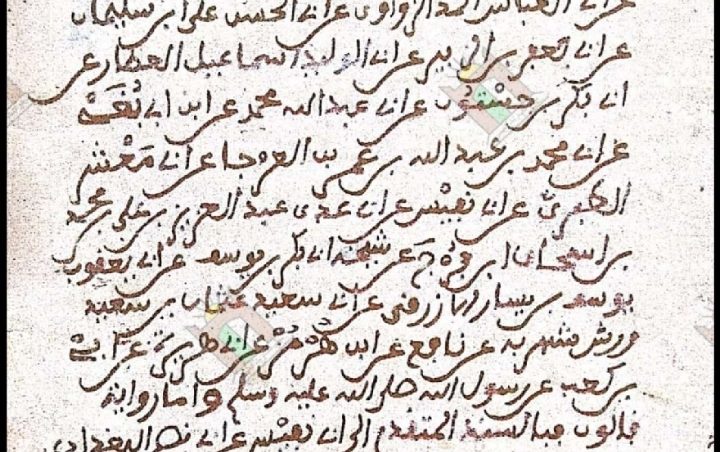 عن أبي العباس أحمد الزواوي عن أبي الحسن علي بن سليمان
عن أبي جعفر بن الزبير عن أبي الوليد اسماعيل العطار عن
أبي بكر بن حسنون عن أبي عبد الله محمد عن ابن أبي
عن أبي محمد بن عبد الله بن عمر بن العرجا عن أبي مَعْشَر
الطبري عن أبي نفيس عن أبي عدي عبد العزيز بن علي بن محمد
بن اسحاق ابن فرج عن شيخه أبي بكر بن يوسف عن أبي يعقوب
يوسف بن يسار الازرق عن أبي سعيد عثمان بن سعيد
ورش شهر به عن نافع عن ابن هرمز عن أبي هريرة عن أبي
بن كعب عن رسول الله صلى الله عليه وسلم وأما رواية
قالون فبالسند المتقدم إلى أبي نفيس عن أبي البغدادي